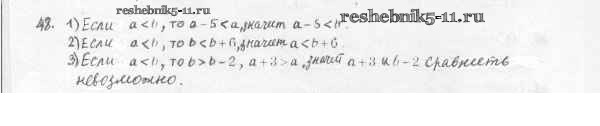 reshebnik5-11.ru
48. 1) Если a < b, то a - 5 < a, значит a - 5 < b.
reshebnik5-11.ru
2) Если a < b, то b < b + 6, значит a < b + 6
3) Если a < b, то b > b - 2, a + 3 > a, значит a + 3 и b - 2 сравнить
невозможно.